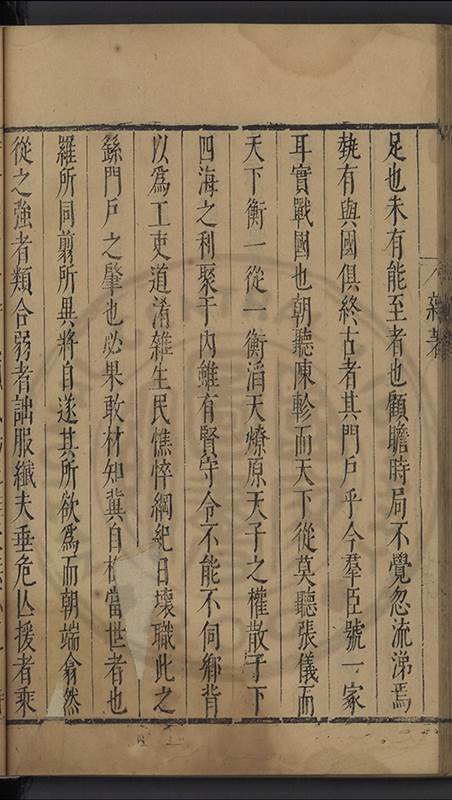 雜著
足也未有能至者也顧瞻時局不覺忽流涕焉
埶有與國俱終古者其門戶乎今羣臣號一家
耳實戰國也朝聽陳軫而天下從莫聽張儀而
天下衡一從一衡滔天燎原天子之權散于下
四海之利聚于內雖有賢守令不能不伺鄉背
以為工吏道淆雜生民憔悴綱紀日壞職此之
繇門戶之肇也必果敢材知冀自樹當世者也
羅所同翦所異將自遂其所欲為而朝端翕然
從之強者類合弱者詘服纖夫垂危丛援者乘